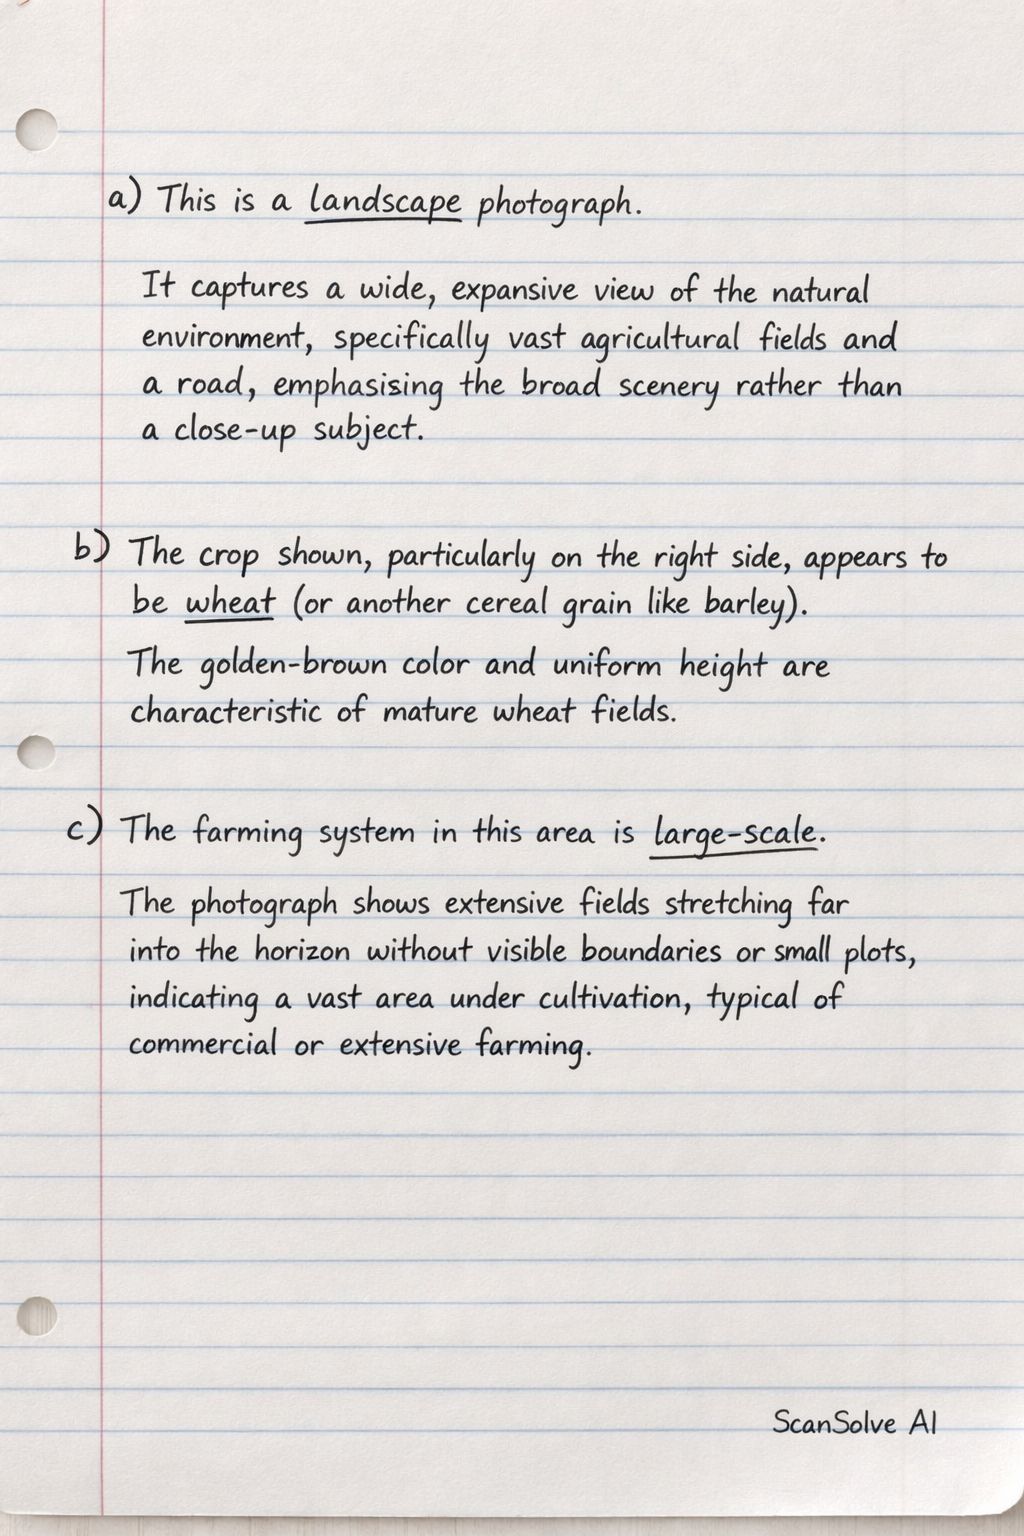 a) This is a landscape photograph.
It captures a wide, expansive view of the natural
environment, specifically vast agricultural fields and
a road, emphasising the broad scenery rather than
a close-up subject.
b) The crop shown, particularly on the right side, appears to
be wheat (or another cereal grain like barley).
The golden-brown color and uniform height are
characteristic of mature wheat fields.
c) The farming system in this area is large-scale.
The photograph shows extensive fields stretching far
into the horizon without visible boundaries or small plots,
indicating a vast area under cultivation, typical of
commercial or extensive farming.
ScanSolve AI